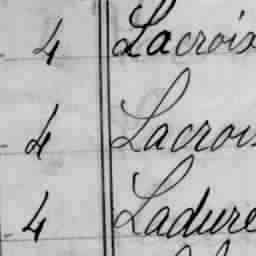 4 Lacroix
4 Lacroix
4 Ladure